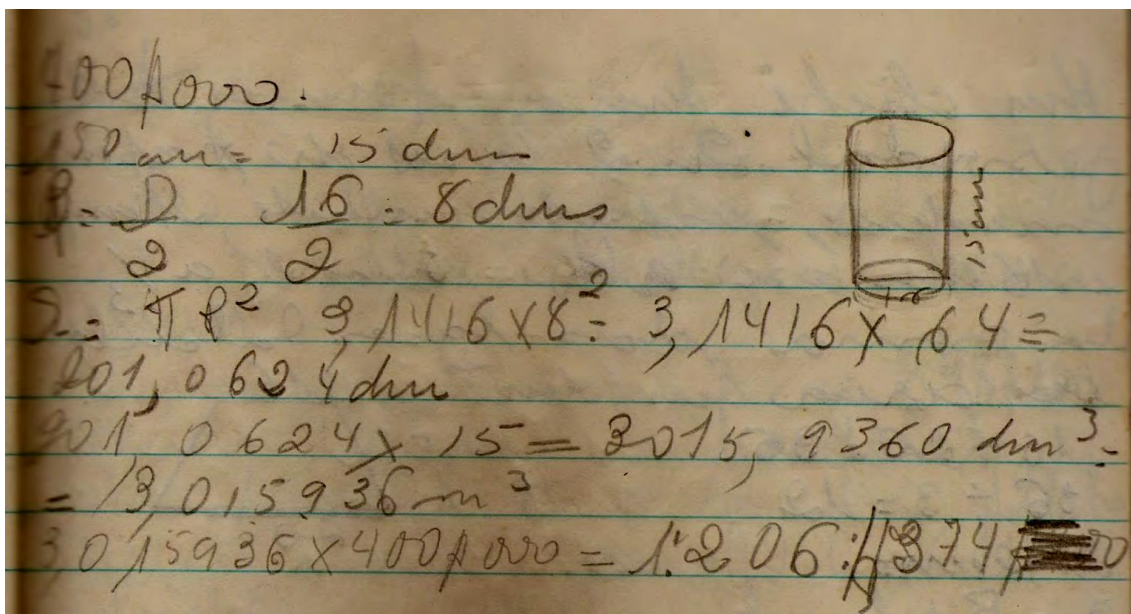 400$000.
150 cm = 15 dm
R = D/2 16/2 = 8 dms
S = π R² 3,1416 x 8² = 3,1416 x 64 =
201,0624 dm
15 cm
201,0624 x 15 = 3015,9360 dm³ =
= 3,015936 m³
3,015936 x 400$000 = 1:206:$374